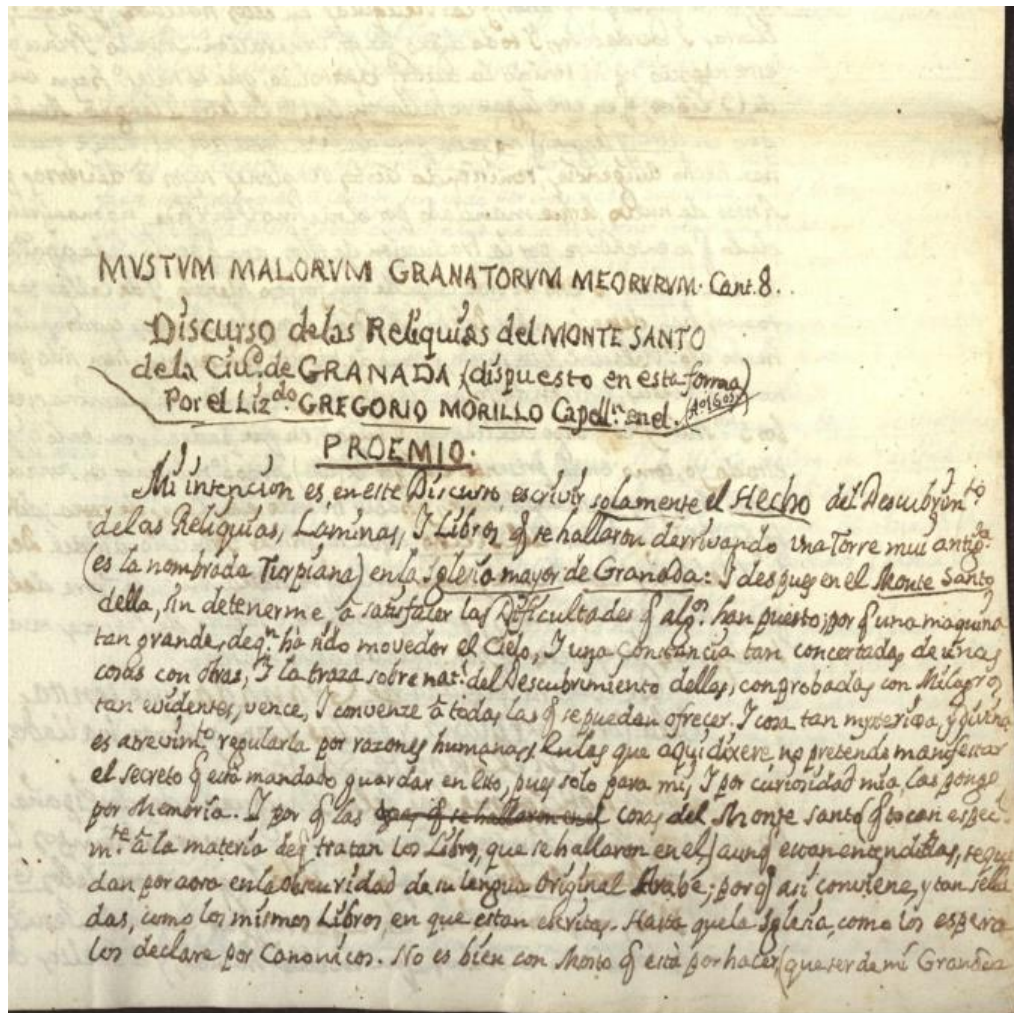 MVSTVM MALORVM GRANATORVM MEORVRVM. Cant. 8.
Discurso de las Reliquias del MONTE SANTO
de la Ciu.d de GRANADA (dispuesto en esta forma)
Por el Liz.do GREGORIO MORILLO Capell.n en el.
PROEMIO.
Mi intencion es, en este Discurso escrivir solamente el Hecho del Descubrim.to
de las Reliquias, Laminas, I Libros q̃ se hallaron derrivando una Torre mui antig.a
(es la nombrada Turpiana) en la Iglesia mayor de Granada: I despues en el Monte Santo
della, sin detenerme, à satisfacer las Dificultades q̃ alg.s han puesto; por q̃ una maquina
tan grande, de q.n ha sido movedor el Cielo, I una constancia tan concertada, de unas
cosas con otras, I la traza sobre nat.l del Descubrimiento dellas, comprobadas con Milagros
tan evidentes, vence, I convenze à todas las q̃ se puedan ofrecer. I cosa tan mysteriosa, y divina
es atrevim.to regularla por razones humanas, I en las que aqui dixere no pretendo manifestar
el secreto q̃ està mandado guardar en esto, pues solo para mi, I por curiosidad mia, las pongo
por Memoria. I por q̃ las cosas del Monte santo (q̃ tocan espec.l
m.te à la materia de q̃ tratan los Libros, que se hallaron en el) aunq̃ estan entendidas, se que
dan por aora en la obscuridad de su lengua Original Arabe; por q̃ asi conviene, y tan sella
das, como los mismos Libros en que estan escritas. Hasta que la Iglesia, como los espera
los declare por Canonicos. No es bien con Mosto q̃ està por hacer (que ser de mi Granada